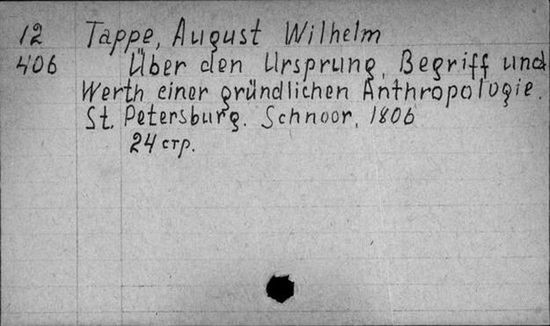 12 Tappe, August Wilhelm
406 Über den Ursprung, Begriff und
Werth einer gründlichen Anthropologie.
St. Petersburg. Schnoor, 1806
24 стр.